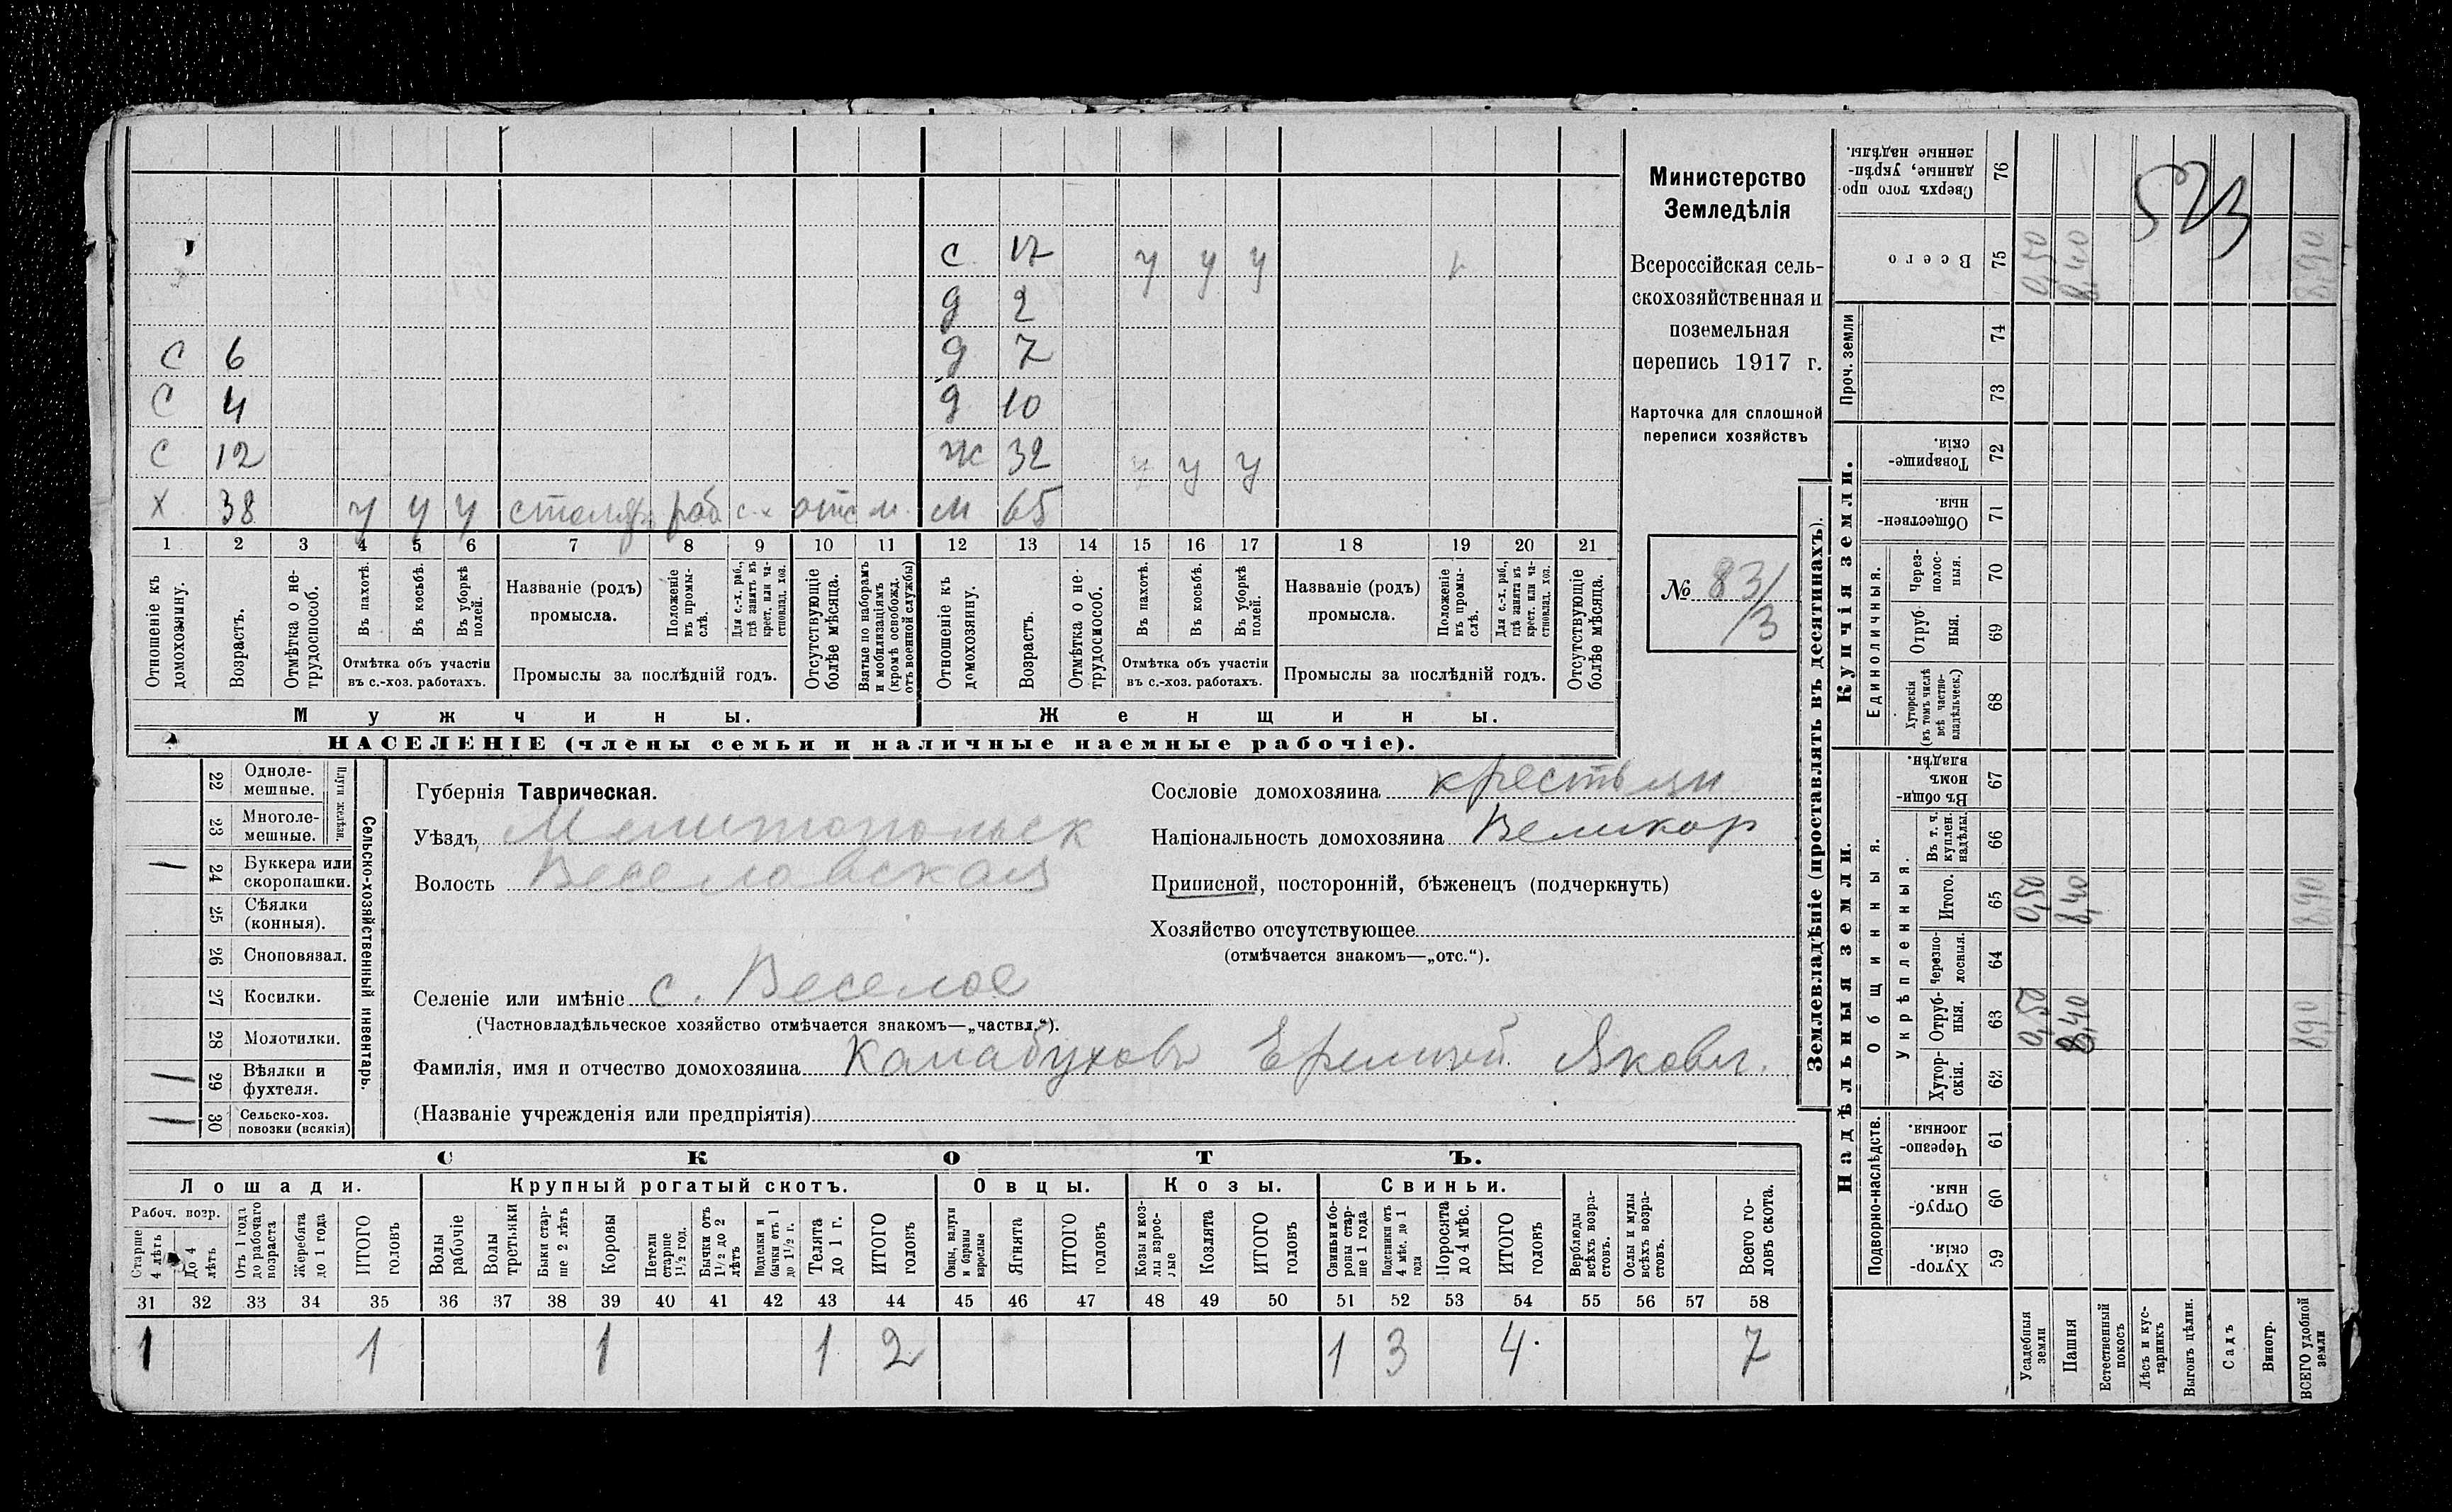 Министерство
Земледѣлія
Всероссійская сель-
скохозяйственная и
поземельная
перепись 1917 г.
Карточка для сплошной
переписи хозяйствъ
№ 83/3
523
с 17 у у у
д 2
с 6 д 7
с 4 д 10
с 12 ж 32 у у у
х 38 у у у столяр раб с.х отс м. м 65
1 2 3 4 5 6 7 8 9 10 11 12 13 14 15 16 17 18 19 20 21
Отношеніе къ домохозяину.
Возрастъ.
Отмѣтка о не-трудоспособ.
Въ пахотѣ.
Въ косьбѣ.
Въ уборкѣ полей.
Отмѣтка объ участіи
въ с.-хоз. работахъ.
Названіе (родъ)
промысла.
Положеніе въ промы-слѣ.
Для с.-х. раб., гдѣ занятъ въ крест. или ча-стновлад. хоз.
Промыслы за послѣдній годъ.
Отсутствующіе болѣе мѣсяца.
Взятые по наборамъ и мобилизаціямъ (кромѣ освобожд. отъ военной службы)
Отношеніе къ домохозяину.
Возрастъ.
Отмѣтка о не-трудоспособ.
Въ пахотѣ.
Въ косьбѣ.
Въ уборкѣ полей.
Отмѣтка объ участіи
въ с.-хоз. работахъ.
Названіе (родъ)
промысла.
Положеніе въ промы-слѣ.
Для с.-х. раб., гдѣ занята въ крест. или ча-стновлад. хоз.
Промыслы за послѣдній годъ.
Отсутствующіе болѣе мѣсяца.
Мужчины. Женщины.
НАСЕЛЕНІЕ (члены семьи и наличные наемные рабочіе).
Сельско-хозяйственный инвентарь.
Плуги желѣзн.
22 Одноле-мешные.
23 Многоле-мешные.
1 24 Буккера или скоропашки.
25 Сѣялки (конныя).
26 Сноповязал.
27 Косилки.
28 Молотилки.
1 29 Вѣялки и фухтеля.
1 30 Сельско-хоз. повозки (всякія)
Губернія Таврическая.
Уѣздъ Мелитопольск
Волость Веселовская
Селеніе или имѣніе с. Веселое
(Частновладѣльческое хозяйство отмѣчается знакомъ—„частвл.“).
Фамилія, имя и отчество домохозяина Калабуховъ Еремѣй Яковл.
(Названіе учрежденія или предпріятія)
Сословіе домохозяина крестьян
Національность домохозяина Великор
Приписной, посторонній, бѣженецъ (подчеркнуть)
Хозяйство отсутствующее
(отмѣчается знакомъ—„отс.“).
СКОТЪ.
Лошади. Крупный рогатый скотъ. Овцы. Козы. Свиньи.
Рабоч. возр.
Старше 4 лѣтъ
До 4 лѣтъ
Отъ 1 года до рабочаго возраста
Жеребята до 1 года
ИТОГО головъ
Волы рабочіе
Волы третьяки
Быки стар-ше 2 лѣтъ
Коровы
Нетели старше 1½ год.
Бычки отъ 1½ до 2 лѣтъ
Подтелки и бычки отъ 1 до 1½ г.
Телята до 1 г.
ИТОГО головъ
Овцы, валухи и бараны взрослые
Ягнята
ИТОГО головъ
Козы и коз-лы взрос-лые
Козлята
ИТОГО головъ
Свиньи и бо-ровы стар-ше 1 года
Подсвинки отъ 4 мѣс. до 1 года
Поросята до 4 мѣс.
ИТОГО головъ
Верблюды всѣхъ возра-стовъ.
Ослы и мулы всѣхъ возра-стовъ.
Всего го-ловъ скота.
31 32 33 34 35 36 37 38 39 40 41 42 43 44 45 46 47 48 49 50 51 52 53 54 55 56 57 58
1 1 1 1 2 1 3 4 7
Землевладѣніе (проставлять въ десятинахъ).
Надѣльныя земли. Купчія земли. Проч. земли
Подворно-наслѣдств.
Общинныя.
Укрѣпленныя.
Единоличныя.
59 Хутор-скія.
60 Отруб-ныя.
61 Черезпо-лосныя.
62 Хутор-скія.
63 Отруб-ныя. 0,50 8,40 8,90
64 Черезпо-лосныя.
65 Итого. 0,50 8,40 8,90
66 Въ т. ч. куплен. надѣлы.
67 Въ общин-номъ владѣн.
68 Хуторскія (въ томъ числѣ всѣ частно-владѣльческ.)
69 Отруб-ныя.
70 Через-полос-ныя.
71 Обществен-ныя.
72 Товарище-скія.
73
74
75 Всего 0,50 8,40 8,90
76 Сверхъ того про-данные, укрѣп-ленные надѣлы.
Усадебныя земли
Пашня
Естественный покосъ
Лѣсъ и кус-тарникъ
Выгонъ цѣлин.
Садъ
Виногр.
ВСЕГО удобной земли